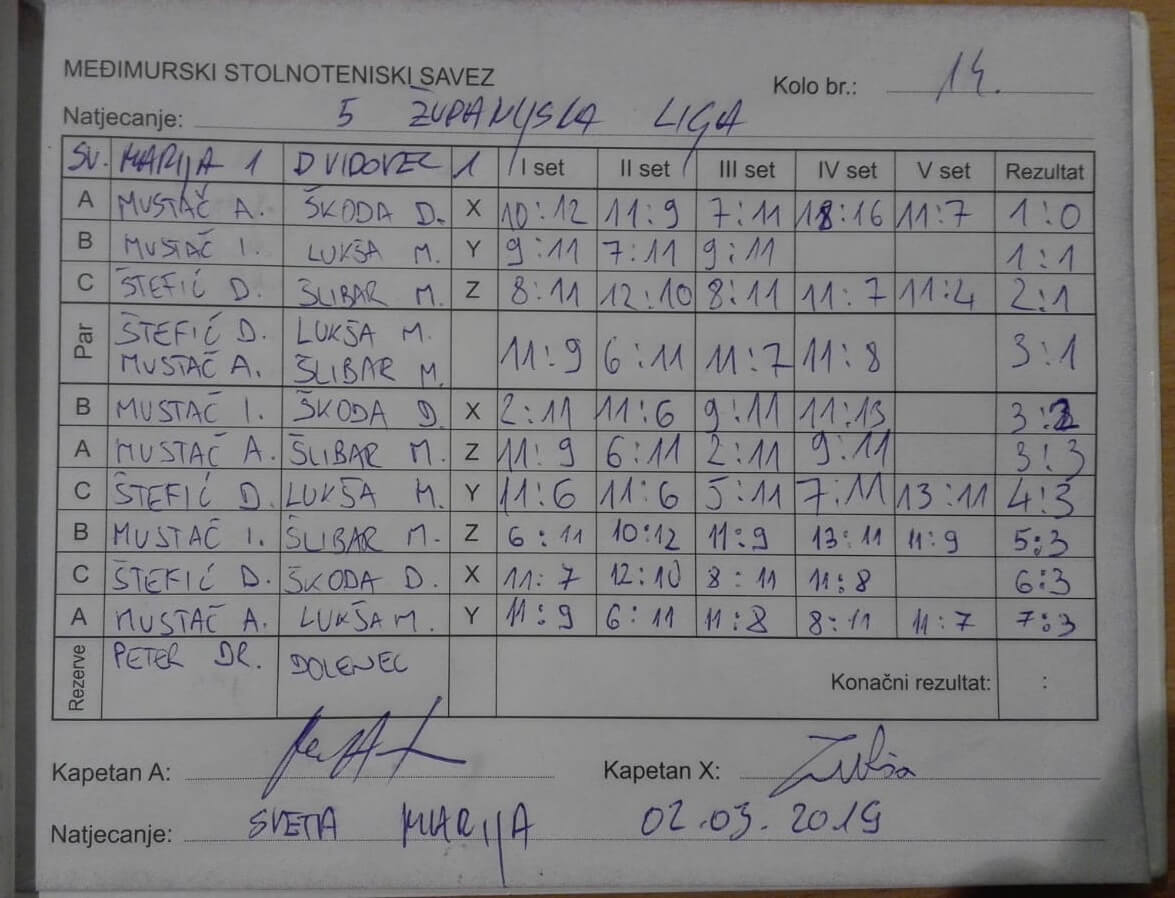 MEĐIMURSKI STOLNOTENISKI SAVEZ
Kolo br.: 14.
Natjecanje: 5 ŽUPANIJSKA LIGA
SV. MARIJA 1 D VIDOVEC 1 I set II set III set IV set V set Rezultat
A MUSTAČ A. ŠKODA D. X 10:12 11:9 7:11 18:16 11:7 1:0
B MUSTAČ I. LUKŠA M. Y 9:11 7:11 9:11 1:1
C ŠTEFIĆ D. ŠLIBAR M. Z 8:11 12:10 8:11 11:7 11:4 2:1
Par ŠTEFIĆ D. LUKŠA M.
MUSTAČ A. ŠLIBAR M. 11:9 6:11 11:7 11:8 3:1
B MUSTAČ I. ŠKODA D. X 2:11 11:6 9:11 11:13 3:2
A MUSTAČ A. ŠLIBAR M. Z 11:9 6:11 2:11 9:11 3:3
C ŠTEFIĆ D. LUKŠA M. Y 11:6 11:6 5:11 7:11 13:11 4:3
B MUSTAČ I. ŠLIBAR M. Z 6:11 10:12 11:9 13:11 11:9 5:3
C ŠTEFIĆ D. ŠKODA D. X 11:7 12:10 8:11 11:8 6:3
A MUSTAČ A. LUKŠA M. Y 11:9 6:11 11:8 8:11 11:7 7:3
Rezerve PETER DR. DOLENEC Konačni rezultat: :
Kapetan A: Kapetan X: Lukša
Natjecanje: SVETA MARIJA 02.03.2019